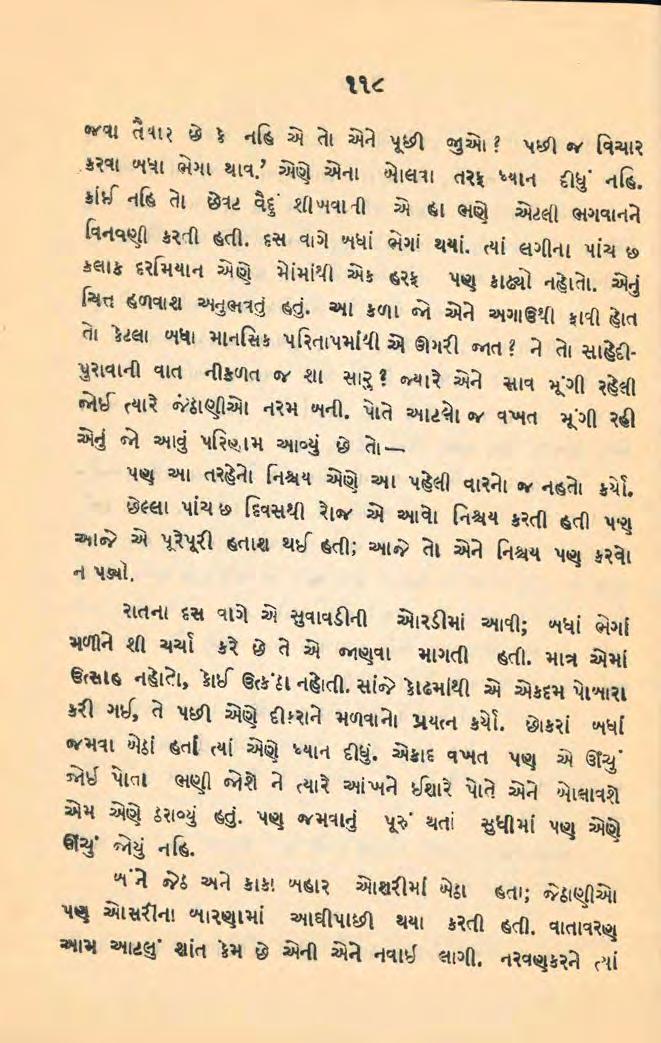 ૧૧૮
જવા તૈયાર છે કે નહિ એ તો એને પૂછી જુઓ? પછી જ વિચાર
કરવા બધા ભેગા થાવ.’ એણે એના બોલવા તરફ ધ્યાન દીધું નહિ.
કાંઈ નહિ તો છેવટ વૈદું શીખવાની એ હા ભણે એટલી ભગવાનને
વિનવણી કરતી હતી. દસ વાગે બધાં ભેગાં થયાં. ત્યાં લગીના પાંચ છ
કલાક દરમિયાન એણે મોંમાંથી એક હરફ પણ કાઢ્યો નહોતો. એનું
ચિત્ત હળવાશ અનુભવતું હતું. આ કળા જો એને અગાઉથી ફાવી હોત
તો કેટલા બધા માનસિક પરિતાપમાંથી એ ઊગરી જાત? ને તો સાહેદી-
પુરાવાની વાત નીકળત જ શા સારુ? જ્યારે એને સાવ મૂંગી રહેલી
જોઈ ત્યારે જેઠાણીઓ નરમ બની. પોતે આટલો જ વખત મૂંગી રહી
એનું જો આવું પરિણામ આવ્યું છે તો—
પણ આ તરહેનો નિશ્ચય એણે આ પહેલી વારનો જ નહતો કર્યો.
છેલ્લા પાંચ છ દિવસથી રોજ એ આવો નિશ્ચય કરતી હતી પણ
આજે એ પૂરેપૂરી હતાશ થઈ હતી; આજે તો એને નિશ્ચય પણ કરવો
ન પડ્યો.
રાતના દસ વાગે એ સુવાવડીની ઓરડીમાં આવી; બધાં ભેગાં
મળીને શી ચર્ચા કરે છે તે એ જાણવા માગતી હતી. માત્ર એમાં
ઉત્સાહ નહોતો, કોઈ ઉત્કંઠા નહોતી. સાંજે કોઢમાંથી એ એકદમ પોબારા
કરી ગઈ, તે પછી એણે દીકરાને મળવાનો પ્રયત્ન કર્યો. છોકરાં બધાં
જમવા બેઠાં હતાં ત્યાં એણે ધ્યાન દીધું. એકાદ વખત પણ એ ઊંચું
જોઈ પોતા ભણી જોશે ને ત્યારે આંખને ઈશારે પોતે એને બોલાવશે
એમ એણે ઠરાવ્યું હતું. પણ જમવાનું પૂરું થતાં સુધીમાં પણ એણે
ઊંચું જોયું નહિ.
બંને જેઠ અને કાકા બહાર ઓશરીમાં બેઠા હતા; જેઠાણીઓ
પણ ઓસરીના બારણામાં આઘીપાછી થયા કરતી હતી. વાતાવરણ
આમ આટલું શાંત કેમ છે એની એને નવાઈ લાગી. નરવણકરને ત્યાં